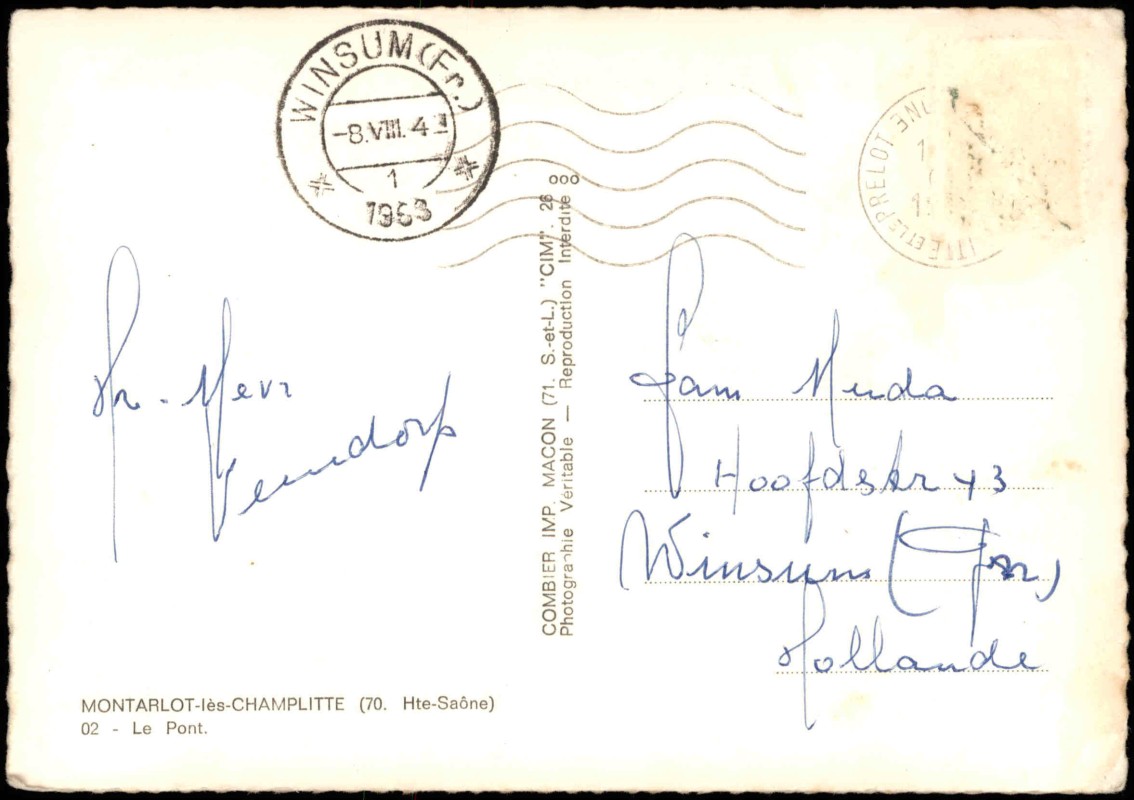 WINSUM (Fr.)
-8.VIII.4
1
1963
PRELOT
COMBIER IMP. MACON (71. S.-et-L.) "CIM". 26 ooo
Photographie Véritable — Reproduction Interdite
Mevr
Fam Muda
Hoofdstr 43
Winsum (
Hollande
MONTARLOT-lès-CHAMPLITTE (70. Hte-Saône)
02 - Le Pont.